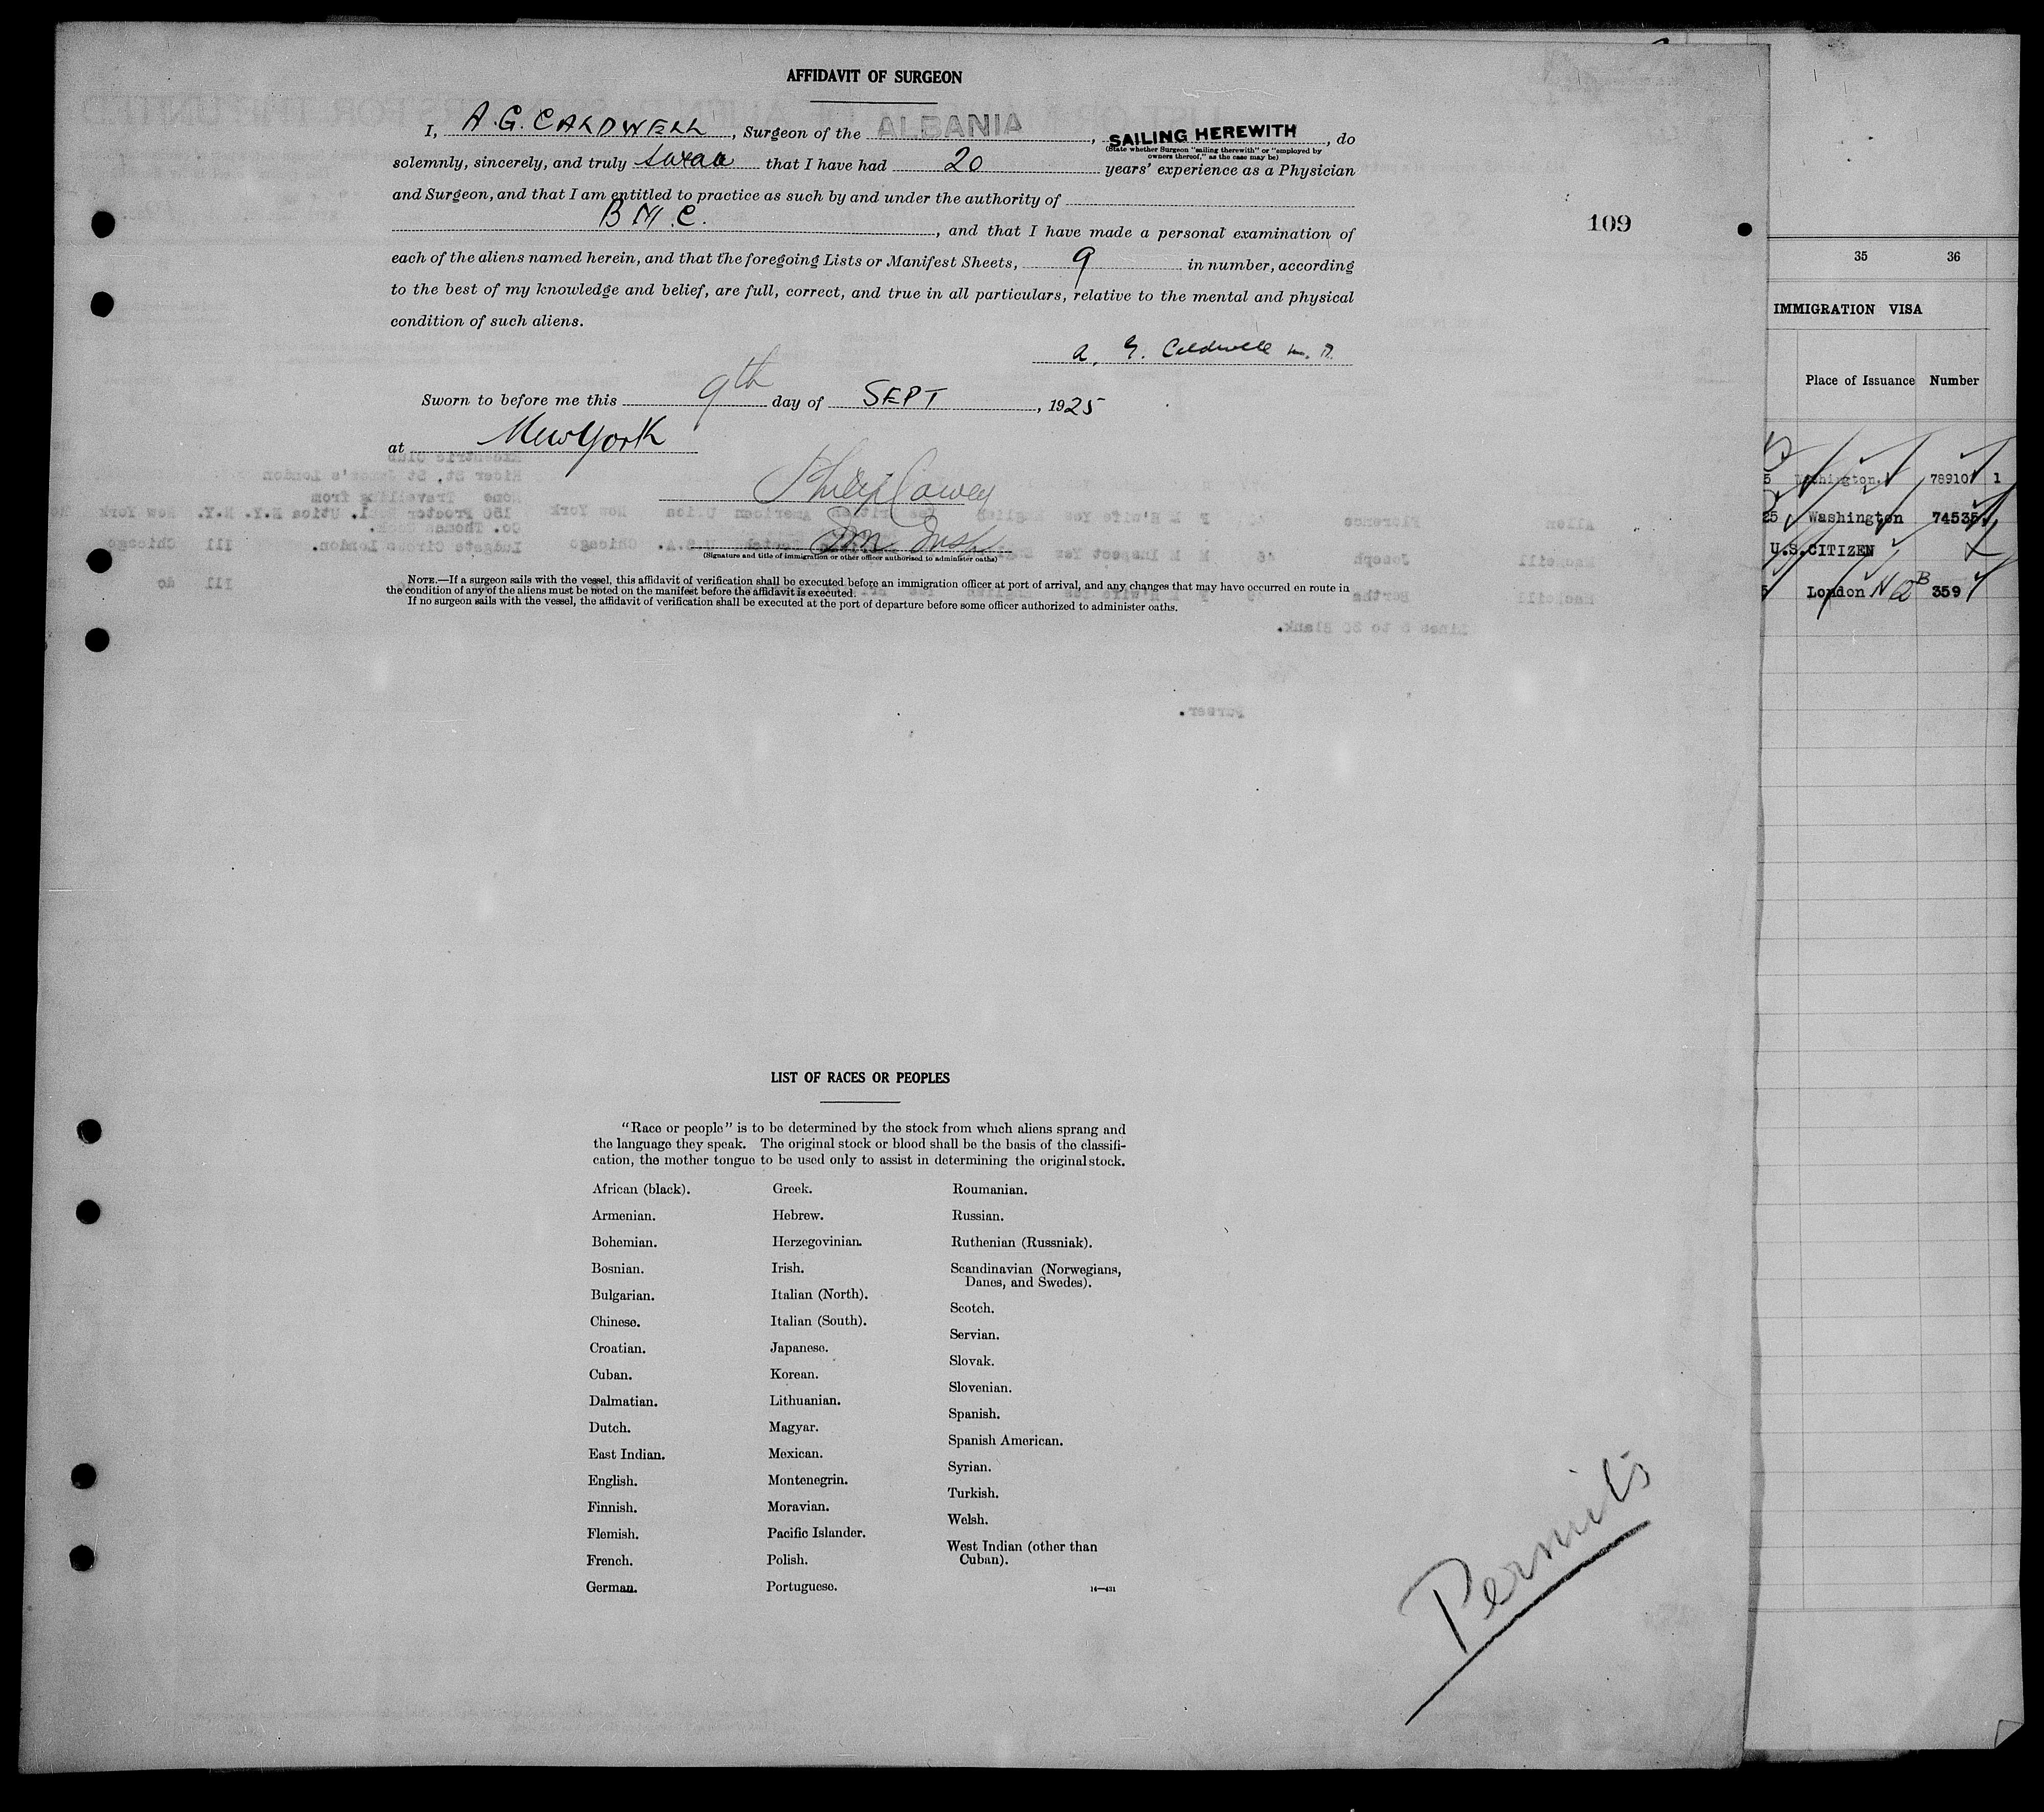 AFFIDAVIT OF SURGEON
I, A. G. CALDWELL, Surgeon of the ALBANIA, SAILING HEREWITH, do
(State whether Surgeon "sailing therewith" or "employed by
owners thereof," as the case may be)
solemnly, sincerely, and truly swear that I have had 20 years' experience as a Physician
and Surgeon, and that I am entitled to practice as such by and under the authority of
B M C., and that I have made a personal examination of
each of the aliens named herein, and that the foregoing Lists or Manifest Sheets, 9 in number, according
to the best of my knowledge and belief, are full, correct, and true in all particulars, relative to the mental and physical
condition of such aliens.
A. G. Caldwell M. D.
Sworn to before me this 9th day of SEPT, 1925
at New York
Philip Cowen
Imm Insp
(Signature and title of immigration or other officer authorized to administer oaths)
NOTE.—If a surgeon sails with the vessel, this affidavit of verification shall be executed before an immigration officer at port of arrival, and any changes that may have occurred en route in
the condition of any of the aliens must be noted on the manifest before the affidavit is executed.
If no surgeon sails with the vessel, the affidavit of verification shall be executed at the port of departure before some officer authorized to administer oaths.
109
LIST OF RACES OR PEOPLES
"Race or people" is to be determined by the stock from which aliens sprang and
the language they speak. The original stock or blood shall be the basis of the classifi-
cation, the mother tongue to be used only to assist in determining the original stock.
African (black).
Armenian.
Bohemian.
Bosnian.
Bulgarian.
Chinese.
Croatian.
Cuban.
Dalmatian.
Dutch.
East Indian.
English.
Finnish.
Flemish.
French.
German.
Greek.
Hebrew.
Herzegovinian.
Irish.
Italian (North).
Italian (South).
Japanese.
Korean.
Lithuanian.
Magyar.
Mexican.
Montenegrin.
Moravian.
Pacific Islander.
Polish.
Portuguese.
Roumanian.
Russian.
Ruthenian (Russniak).
Scandinavian (Norwegians,
Danes, and Swedes).
Scotch.
Servian.
Slovak.
Slovenian.
Spanish.
Spanish American.
Syrian.
Turkish.
Welsh.
West Indian (other than
Cuban).
14—431
Permits
35 36
IMMIGRATION VISA
Place of Issuance Number
5 Washington. 78910 1
25 Washington 74535
U.S. CITIZEN
5 London 359